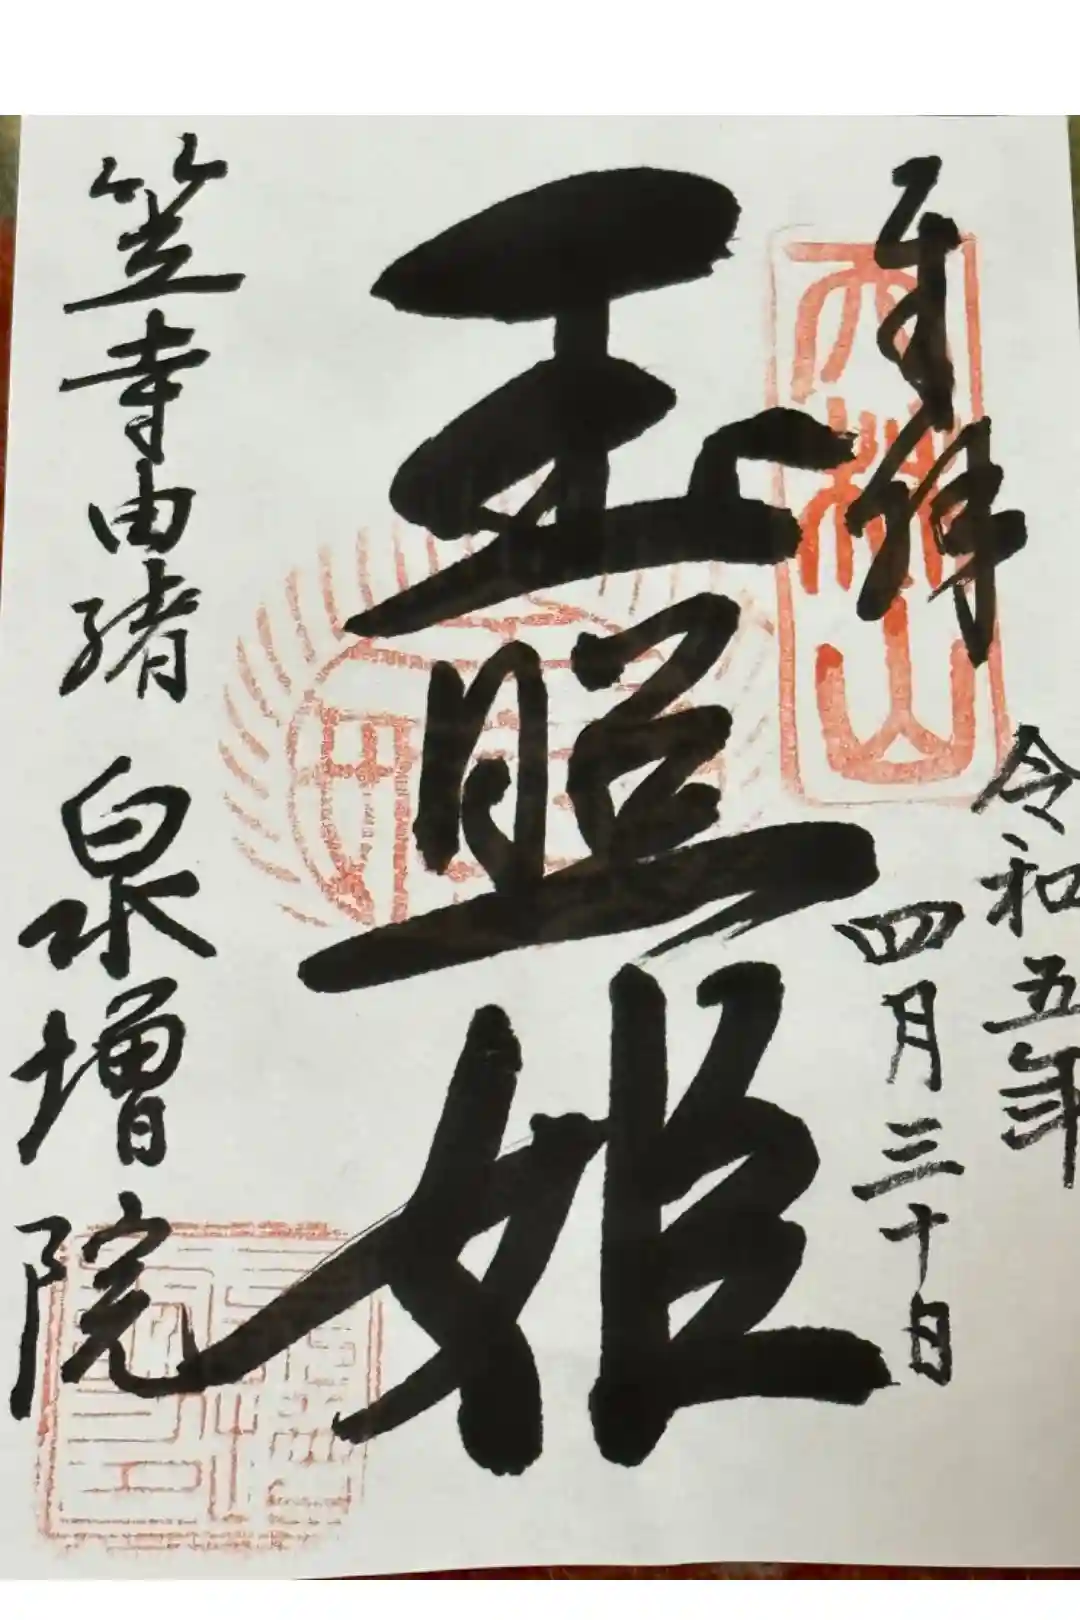 奉拝
天林山
令和五年
四月三十日
玉照姫
笠寺由緒 泉増院